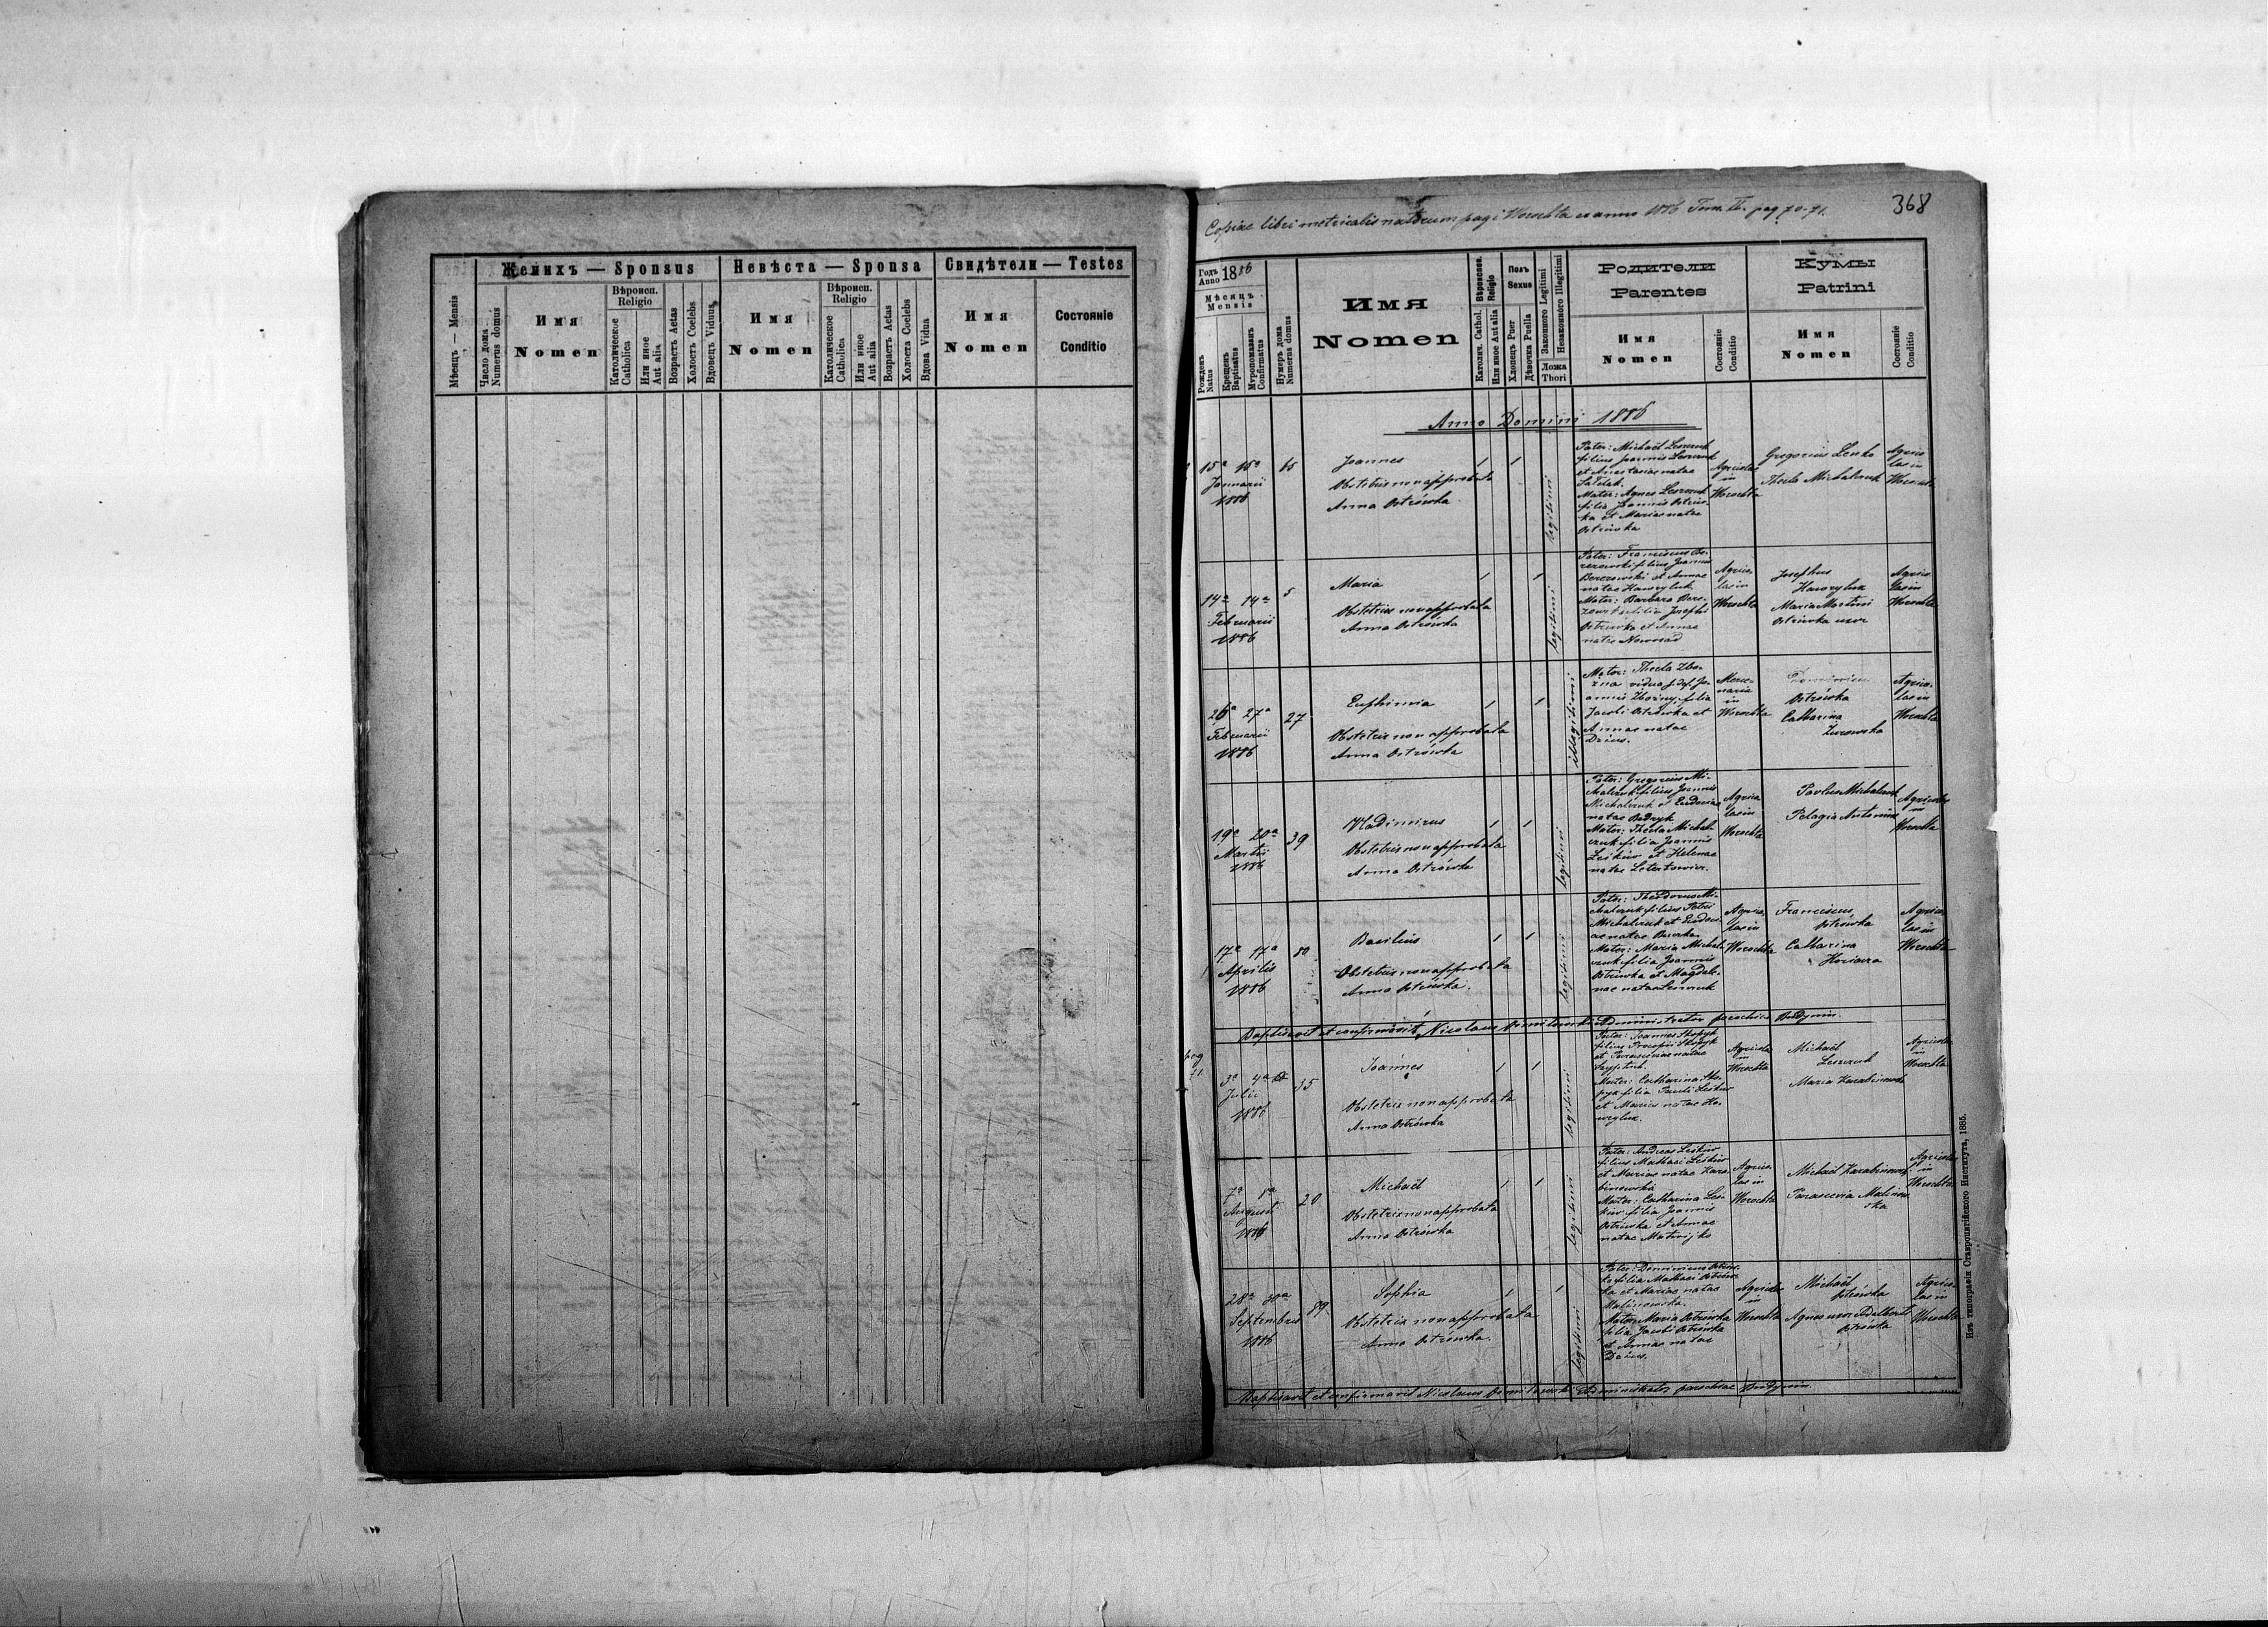 Женихъ — Sponsus
Невѣста — Sponsa
Свидѣтели — Testes
Мѣсяцъ — Mensis
Число дома
Numerus domus
Имя
Nomen
Вѣроисп.
Religio
Католическое
Catholica
Или иное
Aut alia
Возрастъ Aetas
Холостъ Coelebs
Вдовецъ Viduus
Имя
Nomen
Вѣроисп.
Religio
Католическое
Catholica
Или иное
Aut alia
Возрастъ Aetas
Холоста Coelebs
Вдова Vidua
Имя
Nomen
Состояніе
Conditio
368
Copiae libri metricalis natorum pagi Worochta ex anno 1886 Tom. II. pag 70-71.
Годъ
Anno 1886
Мѣсяцъ
Mensis
Рожденъ
Natus
Крещенъ
Baptisatus
Мѵропомазанъ
Confirmatus
Нумеръ дома
Numerus domus
Имя
Nomen
Вѣроиспов.
Religio
Католич. Cathol.
Или иное Aut alia
Полъ
Sexus
Хлопецъ Puer
Дѣвочка Puella
Законного Legitimi
Незаконного Illegitimi
Ложа
Thori
Родители
Parentes
Имя
Nomen
Состояніе
Conditio
Кумы
Patrini
Имя
Nomen
Состояніе
Conditio
Anno Domini 1886
15a 15a
Januarii
1886
65
Joannes
Obstetrix non approbata
Anna Ostrówka
legitimi
Pater: Michaël Leszczuk
filius Joannis Leszczuk
et Anastasiae natae
Mater: Agnes Leszczuk
filia Joannis Ostrów-
ka et Mariae natae
Ostrówka
Agricolae
in
Worochta
Gregorius Lenko
Thecla Michalczuk
Agrico
lae in
Worochta
14a 14a
Februarii
1886
5
Maria
Obstetrix non approbata
Anna Ostrówka
legitimi
Pater: Franciscus Be-
rezowski filius Joannis
Berezowski et Annae
natae Hawryluk
Mater: Barbara Bere-
zowska filia Josephi
Ostrówka et Annae
natae Nowosad
Agrico-
lae in
Worochta
Josephus
Hawryluk
Maria Martini
Ostrówka uxor
Agrico
lae in
Worochta
26a 27a
Februarii
1886
27
Euphimia
Obstetrix non approbata
Anna Ostrówka
illegitimi
Mater: Thecla Zbo-
żna vidua p. def. Jo-
annis Zbożny, filia
Jacobi Ostrówka et
Annae natae
Dzius.
Merce-
naria
in
Worochta
Ostrówka
Catharina
Agrico-
lae in
Worochta
19a 20a
Martii
1886
39
Wladimirus
Obstetrix non approbata
Anna Ostrówka
legitimi
Pater: Gregorius Mi-
chalczuk filius Joannis
Michalczuk et Eudociae
natae Bedryk
Mater: Thecla Michal-
czuk filia Joannis
Leśkiw et Helenae
natae
Agrico
lae in
Worochta
Paulus Michalczuk
Pelagia
Agricolae
in
Worochta
17a 17a
Aprilis
1886
80
Basilius
Obstetrix non approbata
Anna Ostrówka.
legitimi
Pater: Theodorus Mi-
chalczuk filius Petri
Michalczuk et Eudoci-
ae natae
Mater: Maria Michal-
czuk filia Joannis
Ostrówka et Magdale-
nae natae Leszczuk
Agrico
lae in
Worochta
Franciscus
Ostrówka
Catharina
Agrico
lae in
Worochta
Baptisavit et confirmavit Nicolaus administrator parochiae
pag
71.
3a 4a
Julii
1886
35
Joannes
Obstetrix non approbata
Anna Ostrówka
legitimi
Pater: Joannes Skopyk
filius Procopii Skopyk
et Parasceviae natae
Mater: Catharina Sko-
pyk filia Pauli Leśkiw
et Mariae natae Ha-
wryluk.
Agricolae
in
Worochta
Michaël
Leszczuk
Maria Karabinowska
Agricolae
in
Worochta
7a 8a
Augusti
1886
20
Michaël
Obstetrix non approbata
Anna Ostrówka
legitimi
Pater: Andreas Leśkiw
filius Mathaei Leśkiw
et Mariae natae Kara-
binowska
Mater: Catharina Leś-
kiw filia Joannis
Ostrówka et Annae
natae Matwijko
Agrico-
lae in
Worochta
Michaël Karabinowski
Parascevia Malinow-
ska
Agricolae
in
Worochta
28a 30a
Septembris
1886
89.
Sophia
Obstetrix non approbata
Anna Ostrówka.
legitimi
Pater: Dominicus Ostrów-
ka filius Mathaei Ostrów-
ka et Mariae natae
Malinowska.
Mater: Maria Ostrówka
filia Jacobi Ostrówka
et Annae natae
Dzius.
Agricolae
in
Worochta
Michaël
Ostrówka
Agnes uxor Adalberti
Ostrówka
Agrico-
lae in
Worochta
Baptisavit et confirmavit Nicolaus administrator parochiae
Изъ типографіи Ставропигійского Института, 1885.